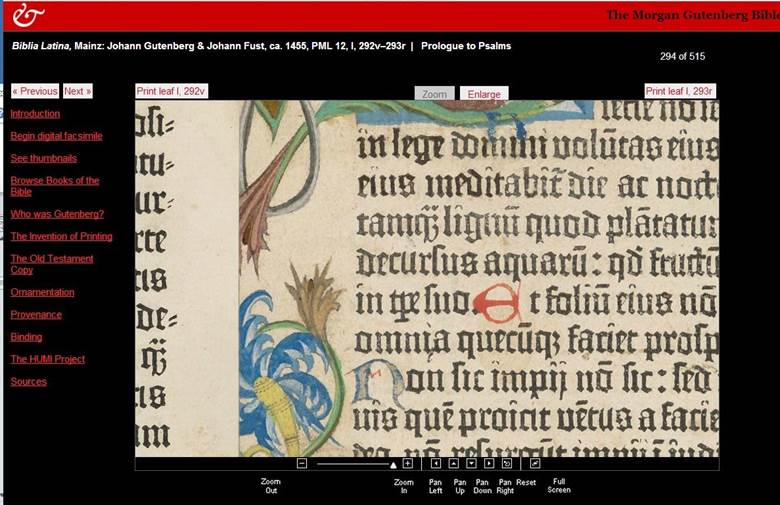 The Morgan Gutenberg Bible
Biblia Latina, Mainz: Johann Gutenberg & Johann Fust, ca. 1455, PML 12, I, 292v–293r | Prologue to Psalms
294 of 515
« Previous Next »
Print leaf I, 292v
Zoom Enlarge
Print leaf I, 293r
Introduction
Begin digital facsimile
See thumbnails
Browse Books of the
Bible
Who was Gutenberg?
The Invention of Printing
The Old Testament
Copy
Ornamentation
Provenance
Binding
The HUMI Project
Sources
in lege domini volūtas eius
eius meditabit̄ die ac noct
tamq̄ lignū quod plātatur
decursus aquarū: qd̄ fructū
in tp̄e suo. Et foliū eius nō
omnia quecūq; faciet prosp
Non sic impij nō sic: sed
uis quē proicit ventus a facie
Zoom
Out
Zoom
In
Pan
Left
Pan
Up
Pan
Down
Pan
Right
Reset
Full
Screen